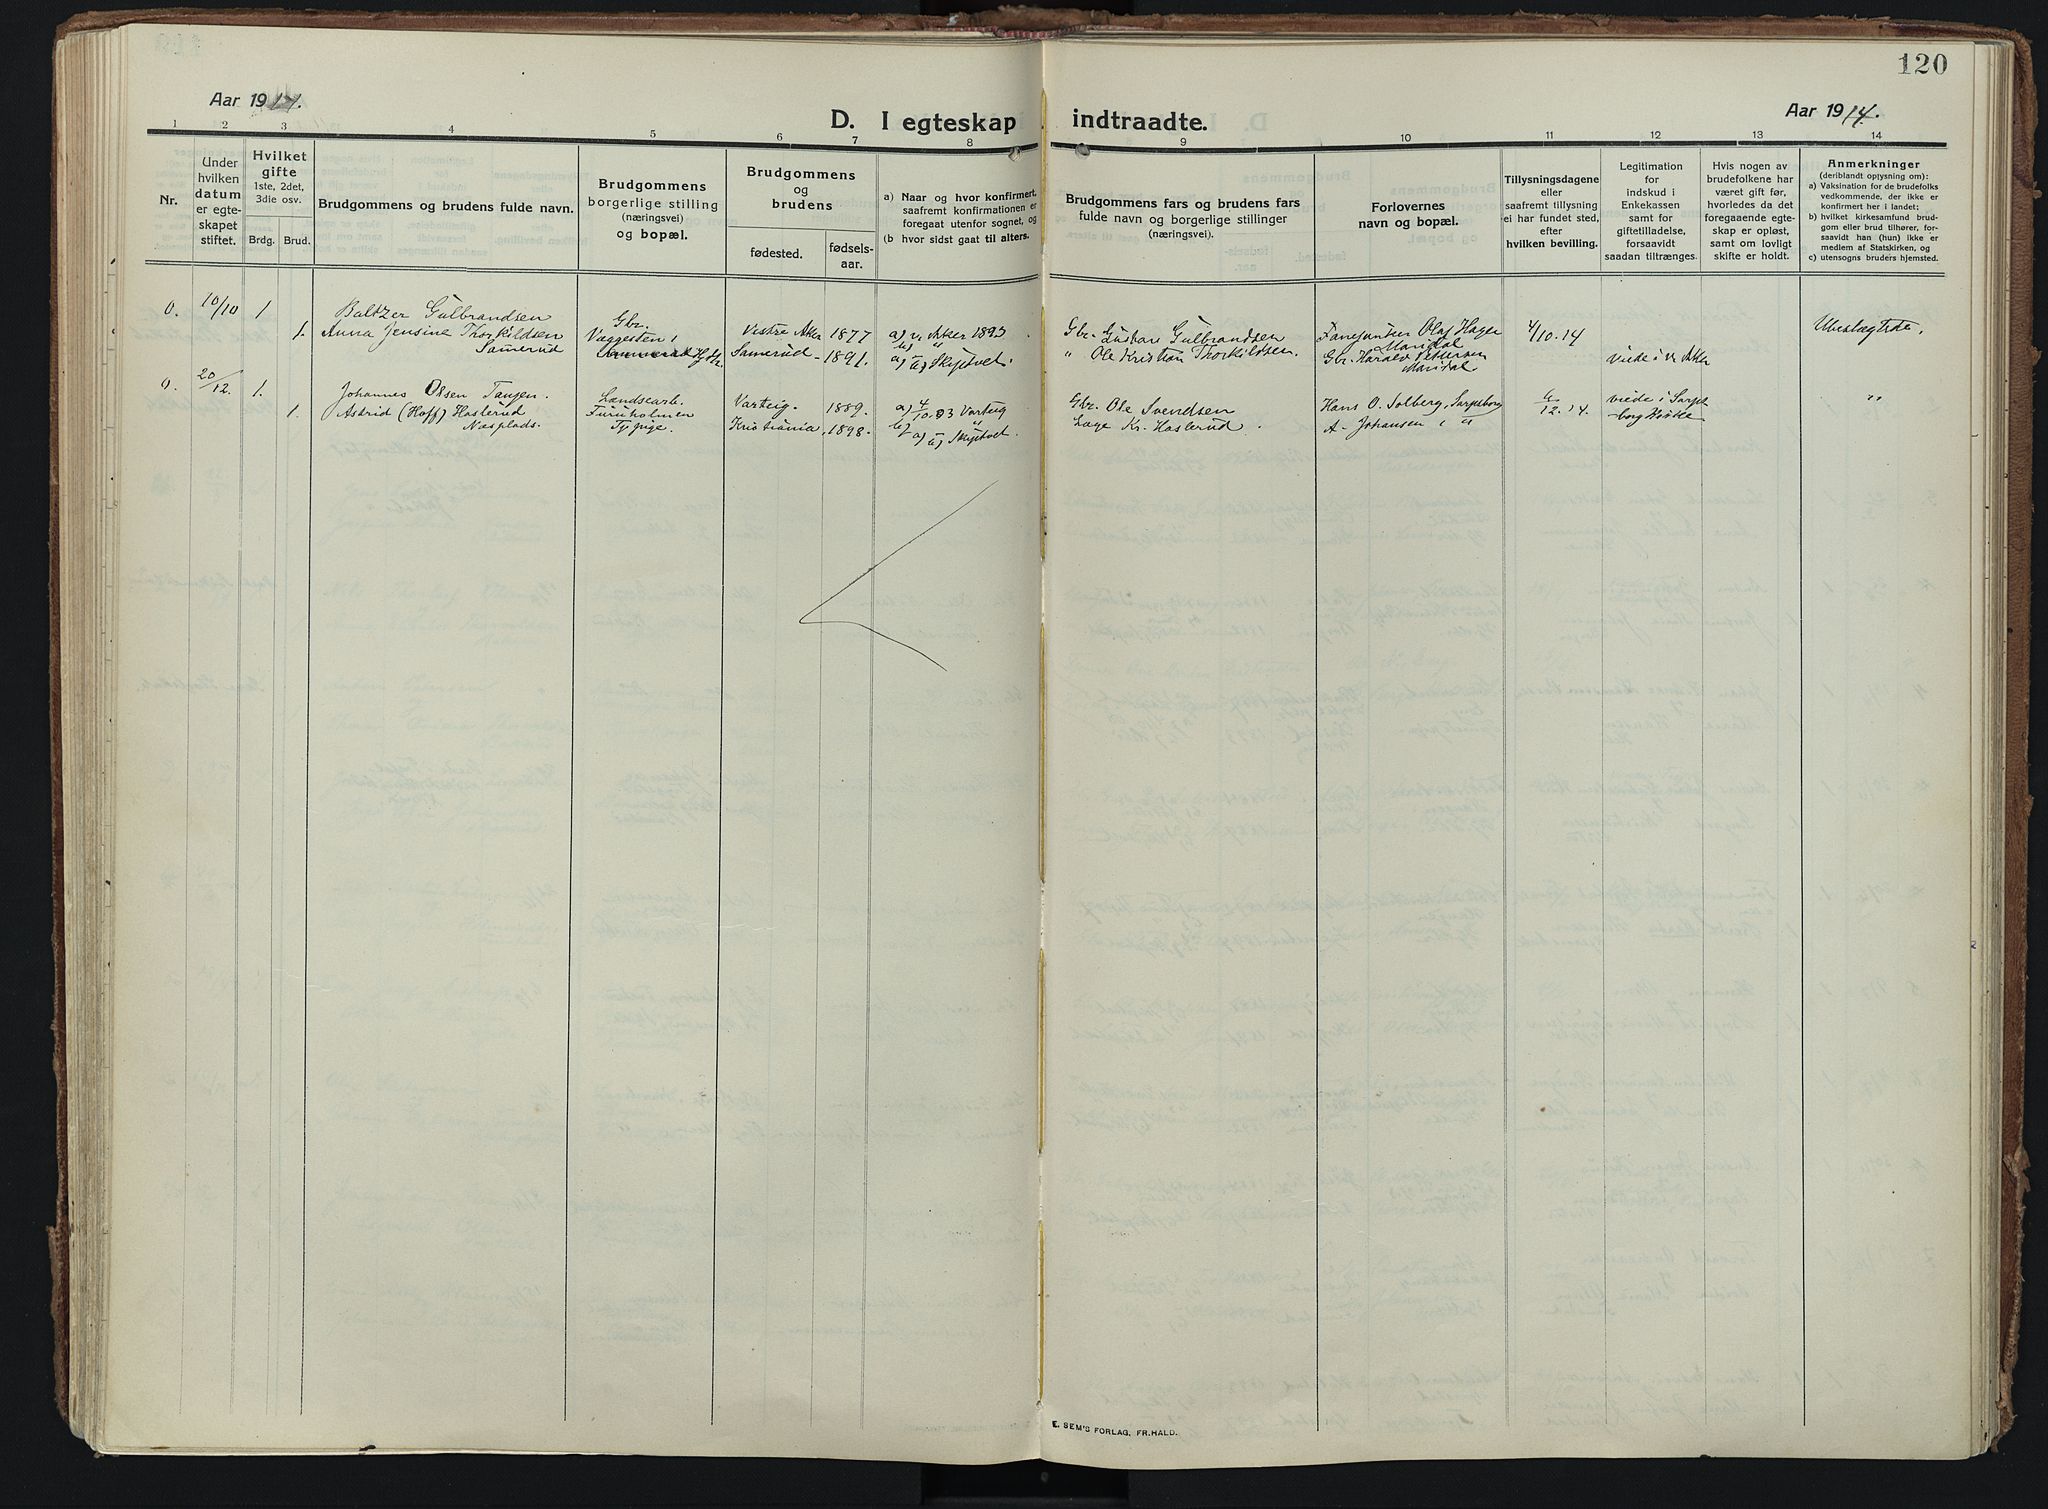 120
Aar 1914.
Aar 1914.
D. I egteskap indtraadte.
1 2 3 4 5 6 7 8 9 10 11 12 13 14
Nr.
Under
hvilken
datum
er egte-
skapet
stiftet.
Hvilket
gifte
1ste, 2det,
3die osv.
Brdg. Brud.
Brudgommens og brudens fulde navn.
Brudgommens
borgerlige stilling
(næringsvei)
og bopæl.
Brudgommens
og
brudens
fødested.
fødsels-
aar.
a) Naar og hvor konfirmert,
saafremt konfirmationen er
foregaat utenfor sognet, og
(b hvor sidst gaat til alters.
Brudgommens fars og brudens fars
fulde navn og borgerlige stillinger
(næringsvei).
Forlovernes
navn og bopæl.
Tillysningsdagene
eller
saafremt tillysning
ei har fundet sted,
efter
hvilken bevilling.
Legitimation
for
indskud i
Enkekassen
samt for
giftetilladelse,
forsaavidt
saadan tiltrænges.
Hvis nogen av
brudefolkene har
været gift før,
hvorledes da det
foregaaende egte-
skap er opløst,
samt om lovligt
skifte er holdt.
Anmerkninger
(deriblandt oplysning om):
a) Vaksination for de brudefolks
vedkommende, der ikke er
konfirmert her i landet;
b) hvilket kirkesamfund brud-
gom eller brud tilhører, for-
saavidt han (hun) ikke er
medlem af Statskirken, og
c) utensogns bruders hjemsted.
0. 10/10 1 Baltzer Gulbrandsen Gbr. Vestre Aker 1877 a) v. Aker 1893 Gbr. Gustav Gulbrandsen Olaf Hagen 4/10.14 Ubeslegtede.
1. Anna Jensine Thorkildsen Samerud - 1891. a) b) Skjetvet. " Ole Kristian Thorkildsen. Maridal
Samerud Gbr. Harald Pettersen viede i V. Aker
Maridal
0. 20/12 1. Johannes Olsen Tangen. Landsearb. Varteig. 1889. a) 4/10.03 Varteig Gbr. Ole Svendsen Hans O. Solberg, Sarpsborg 6/12.14. viede i Sarps "
1. Astrid (Hoff) Haslerud Furuholmen Kristiania, 1898. b) " Kr. Haslerud. A. Johansen i " borg Kirke
Næsplads. Tj.pige. a) b) Skjetvet.
E. SEM'S FORLAG, FR.HALD.